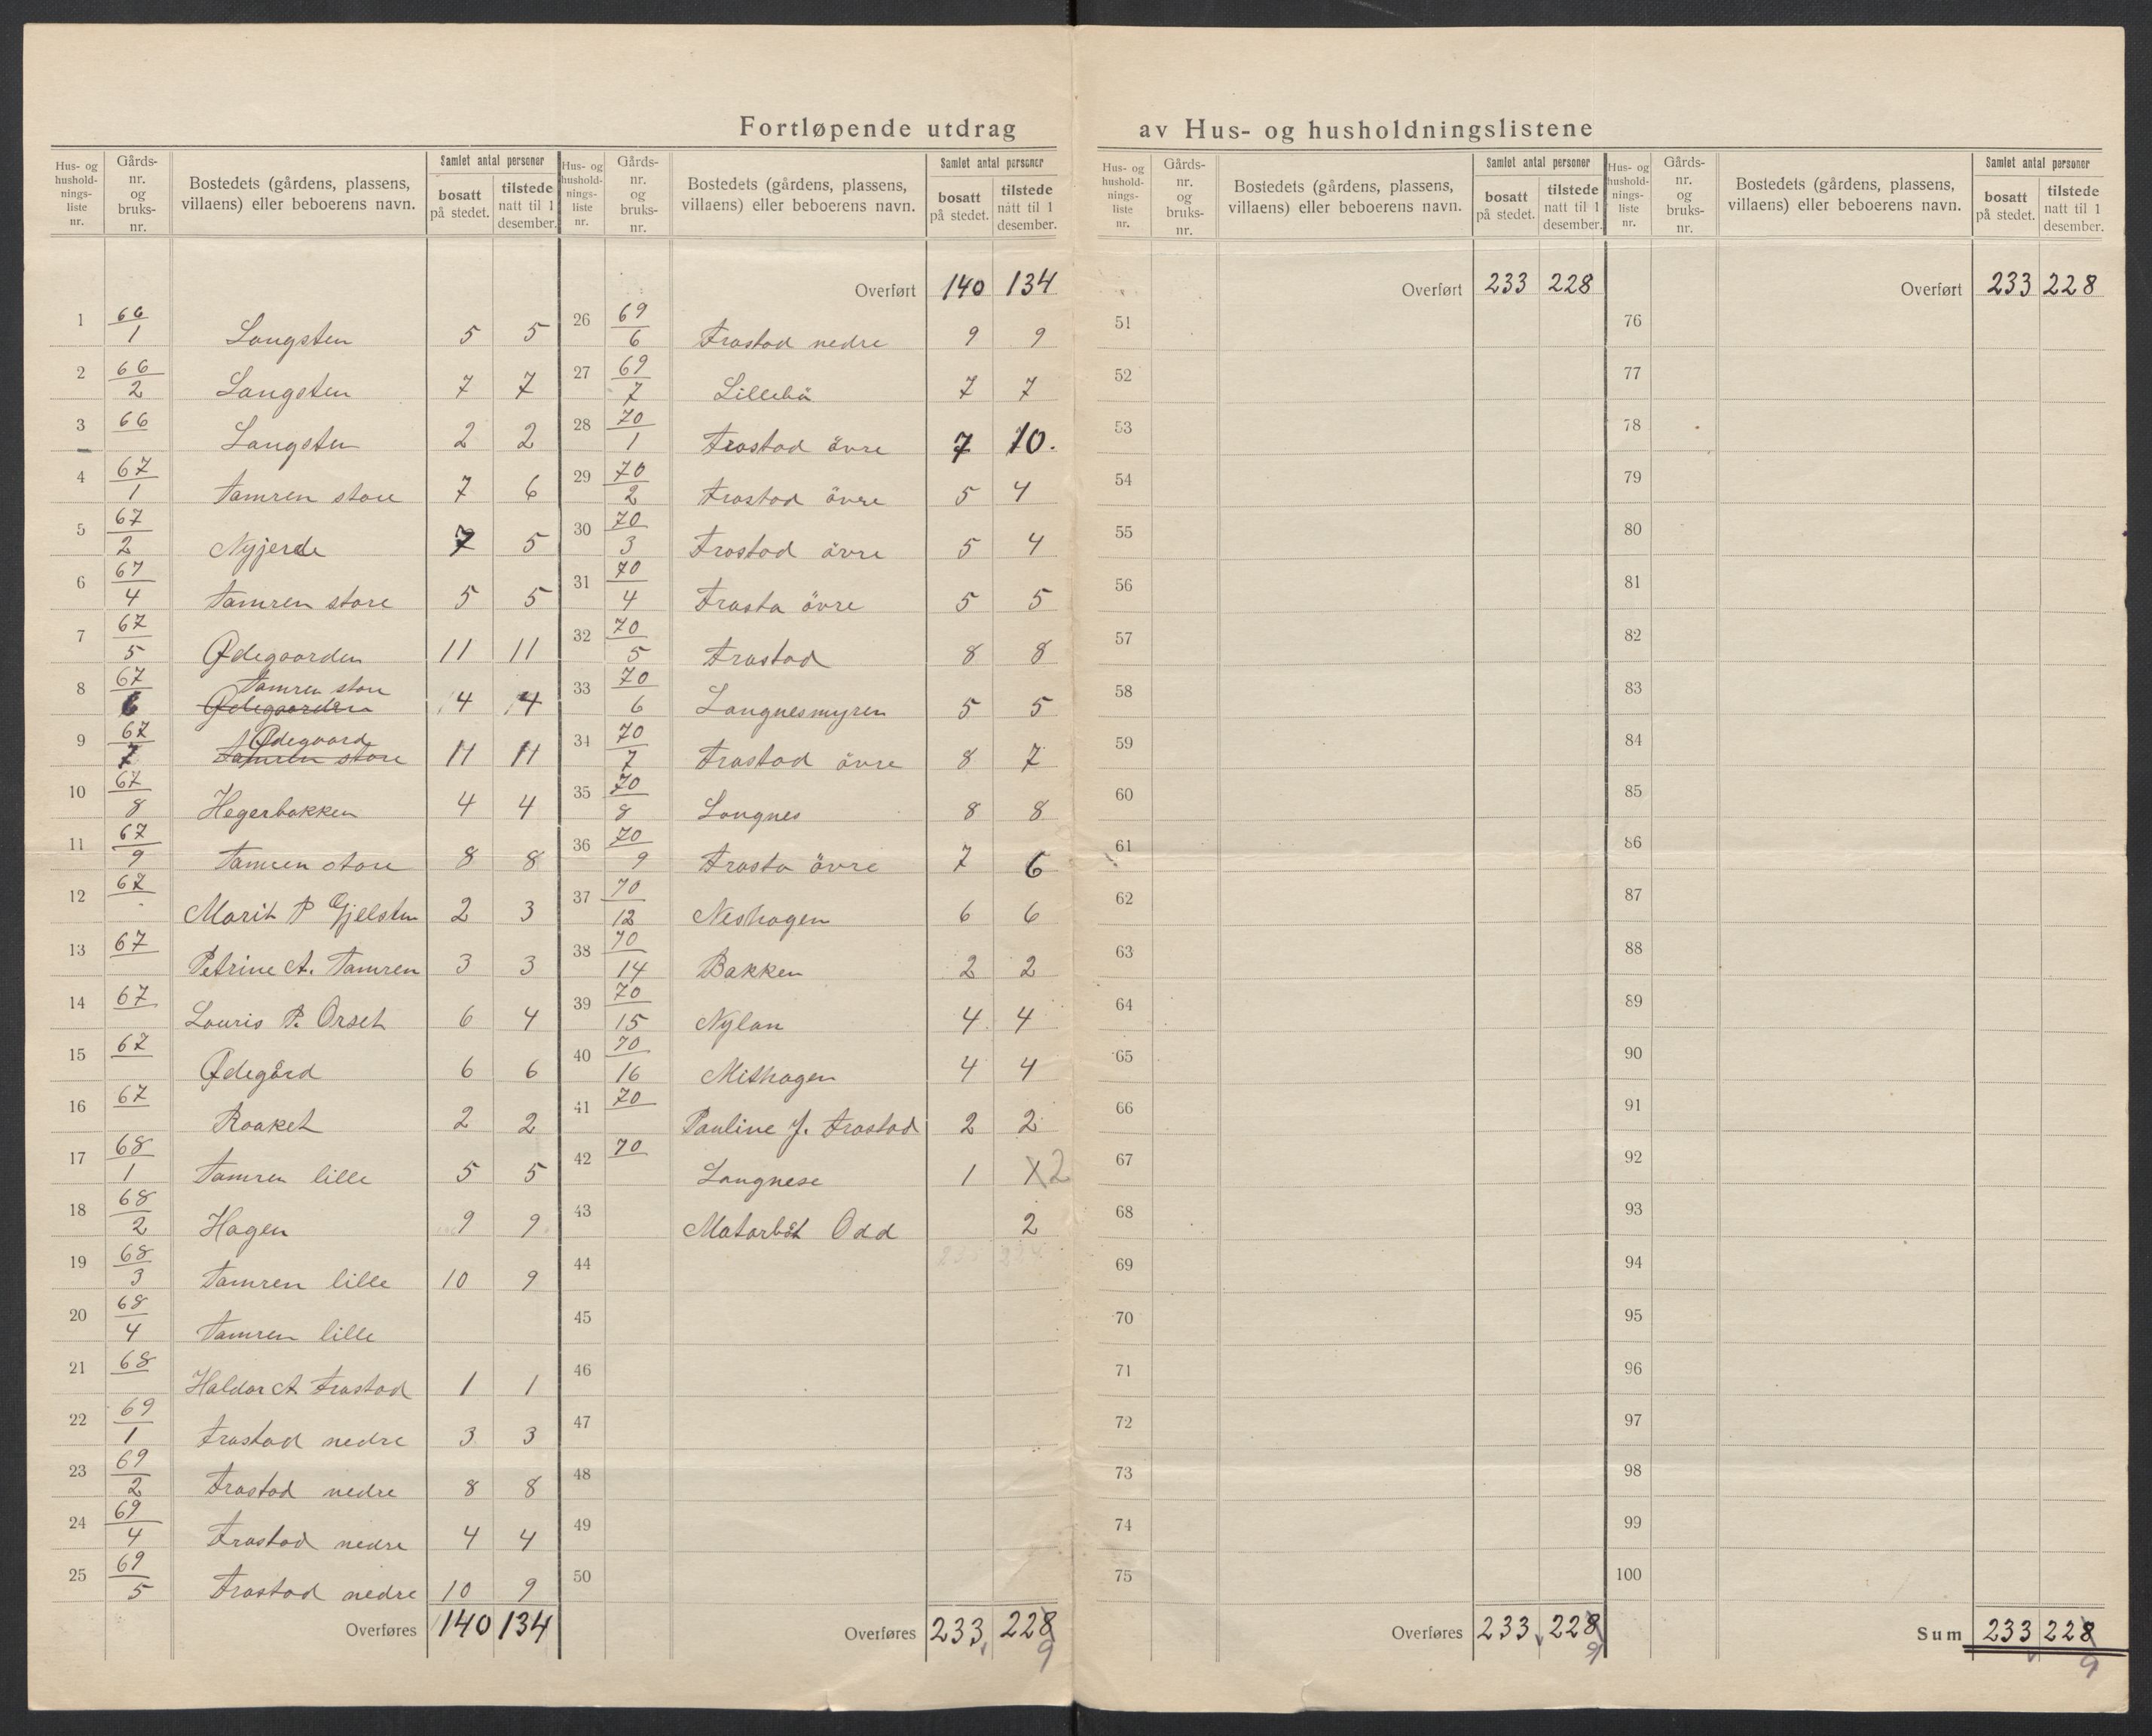 Fortløpende utdrag av Hus- og husholdningslistene
Hus- og husholdnings-liste nr. Gårds-nr. og bruks-nr. Bostedets (gårdens, plassens, villaens) eller beboerens navn. Samlet antal personer bosatt på stedet. tilstede natt til 1 desember.
1 66/1 Langsten 5 5
2 66/2 Langsten 7 7
3 66 Langsten 2 2
4 67/1 Tamren store 7 6
5 67/2 Nyjerde 7 5
6 67/4 Tamren store 5 5
7 67/5 Ødegaarden 11 11
8 67/6 Tamren store Ødegaarden 4 4
9 67/7 Ødegaard Tamren store 11 11
10 67/8 Hegerbakken 4 4
11 67/9 Tamren store 8 8
12 67 Marit P Gjelsten 2 3
13 67 Petrine A. Tamren 3 3
14 67 Lauris P. Orset 6 4
15 67 Ødegård 6 6
16 67 Raaket 2 2
17 68/1 Tamren lille 5 5
18 68/2 Hagen 9 9
19 68/3 Tamren lille 10 9
20 68/4 Tamren lille
21 68 Haldor A Frostad 1 1
22 69/1 Frostad nedre 3 3
23 69/2 Frostad nedre 8 8
24 69/4 Frostad nedre 4 4
25 69/5 Frostad nedre 10 9
Overføres 140 134
Hus- og husholdnings-liste nr. Gårds-nr. og bruks-nr. Bostedets (gårdens, plassens, villaens) eller beboerens navn. Samlet antal personer bosatt på stedet. tilstede natt til 1 desember.
Overført 140 134
26 69/6 Frostad nedre 9 9
27 69/7 Lillebö 7 7
28 70/1 Frostad övre 7 10.
29 70/2 Frostad övre 5 4
30 70/3 Frostad övre 5 4
31 70/4 Frosta övre 5 5
32 70/5 Frostad 8 8
33 70/6 Langnesmyren 5 5
34 70/7 Frostad övre 8 7
35 70/8 Langnes 8 8
36 70/9 Frosta övre 7 6
37 70/12 Neshagen 6 6
38 70/14 Bakken 2 2
39 70/15 Nylan 4 4
40 70/16 Mithagen 4 4
41 70 Pauline J. Frostad 2 2
42 70 Langnese 1 1 2
43 Matarbåt Odd 2
44
45
46
47
48
49
50
Overføres 233 228 9
Hus- og husholdnings-liste nr. Gårds-nr. og bruks-nr. Bostedets (gårdens, plassens, villaens) eller beboerens navn. Samlet antal personer bosatt på stedet. tilstede natt til 1 desember.
Overført 233 228
51
52
53
54
55
56
57
58
59
60
61
62
63
64
65
66
67
68
69
70
71
72
73
74
75
Overføres 233 228 9
Hus- og husholdnings-liste nr. Gårds-nr. og bruks-nr. Bostedets (gårdens, plassens, villaens) eller beboerens navn. Samlet antal personer bosatt på stedet. tilstede natt til 1 desember.
Overført 233 228
76
77
78
79
80
81
82
83
84
85
86
87
88
89
90
91
92
93
94
95
96
97
98
99
100
Sum 233 228 9